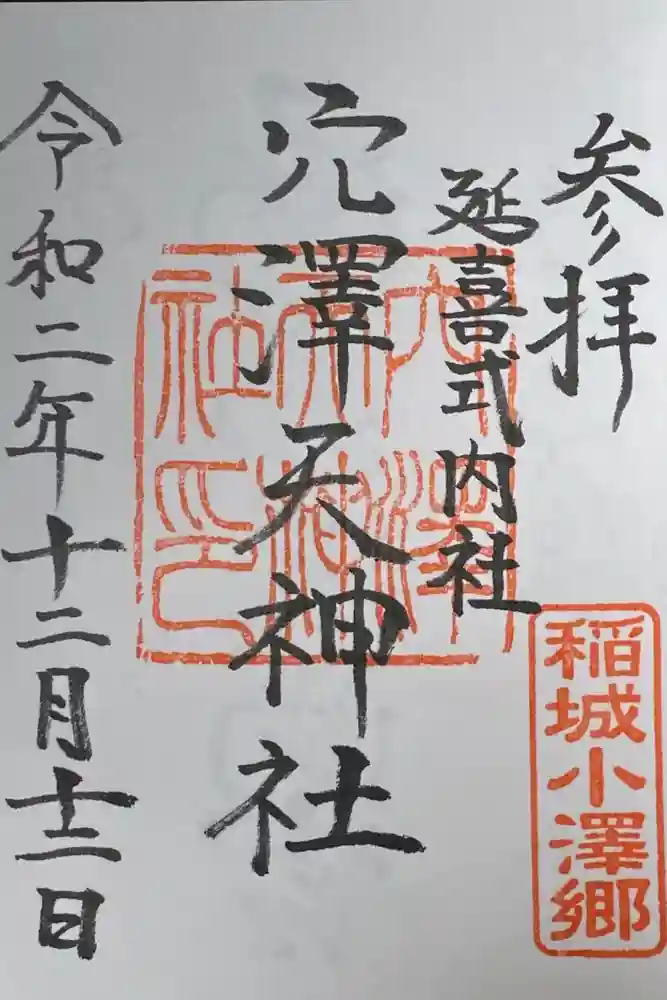 参拝
延喜式内社
穴澤天神社
令和二年十二月十二日
穴澤
天神
社印
稲城小澤郷